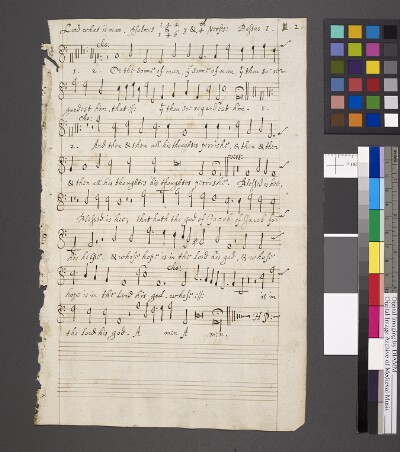 Lord what is man, Psalmes 144 & 146 3 & 4th verses. Bassus 1. 2.
cho:
1. 2. Or the sonne of man, ye sonne of man, yt thou so re-
gardest him, that :||: yt thou so regardest him. 1.
cho:
2. And then & then all his thoughtes perrishe, & then & then
& then all his thoughtes his thoughtes perrishe. Blessed is hee,
Blessed is hee, that hath the god of Jacob of Jacob for
his helpe, & whose hope is in the Lord his god, & whose
cho:
hope is in the Lord his god. whose :||: is in
the lord his god. A men A men.
Digital Imaging by DIAMM
Digital Image Archive of Medieval Music